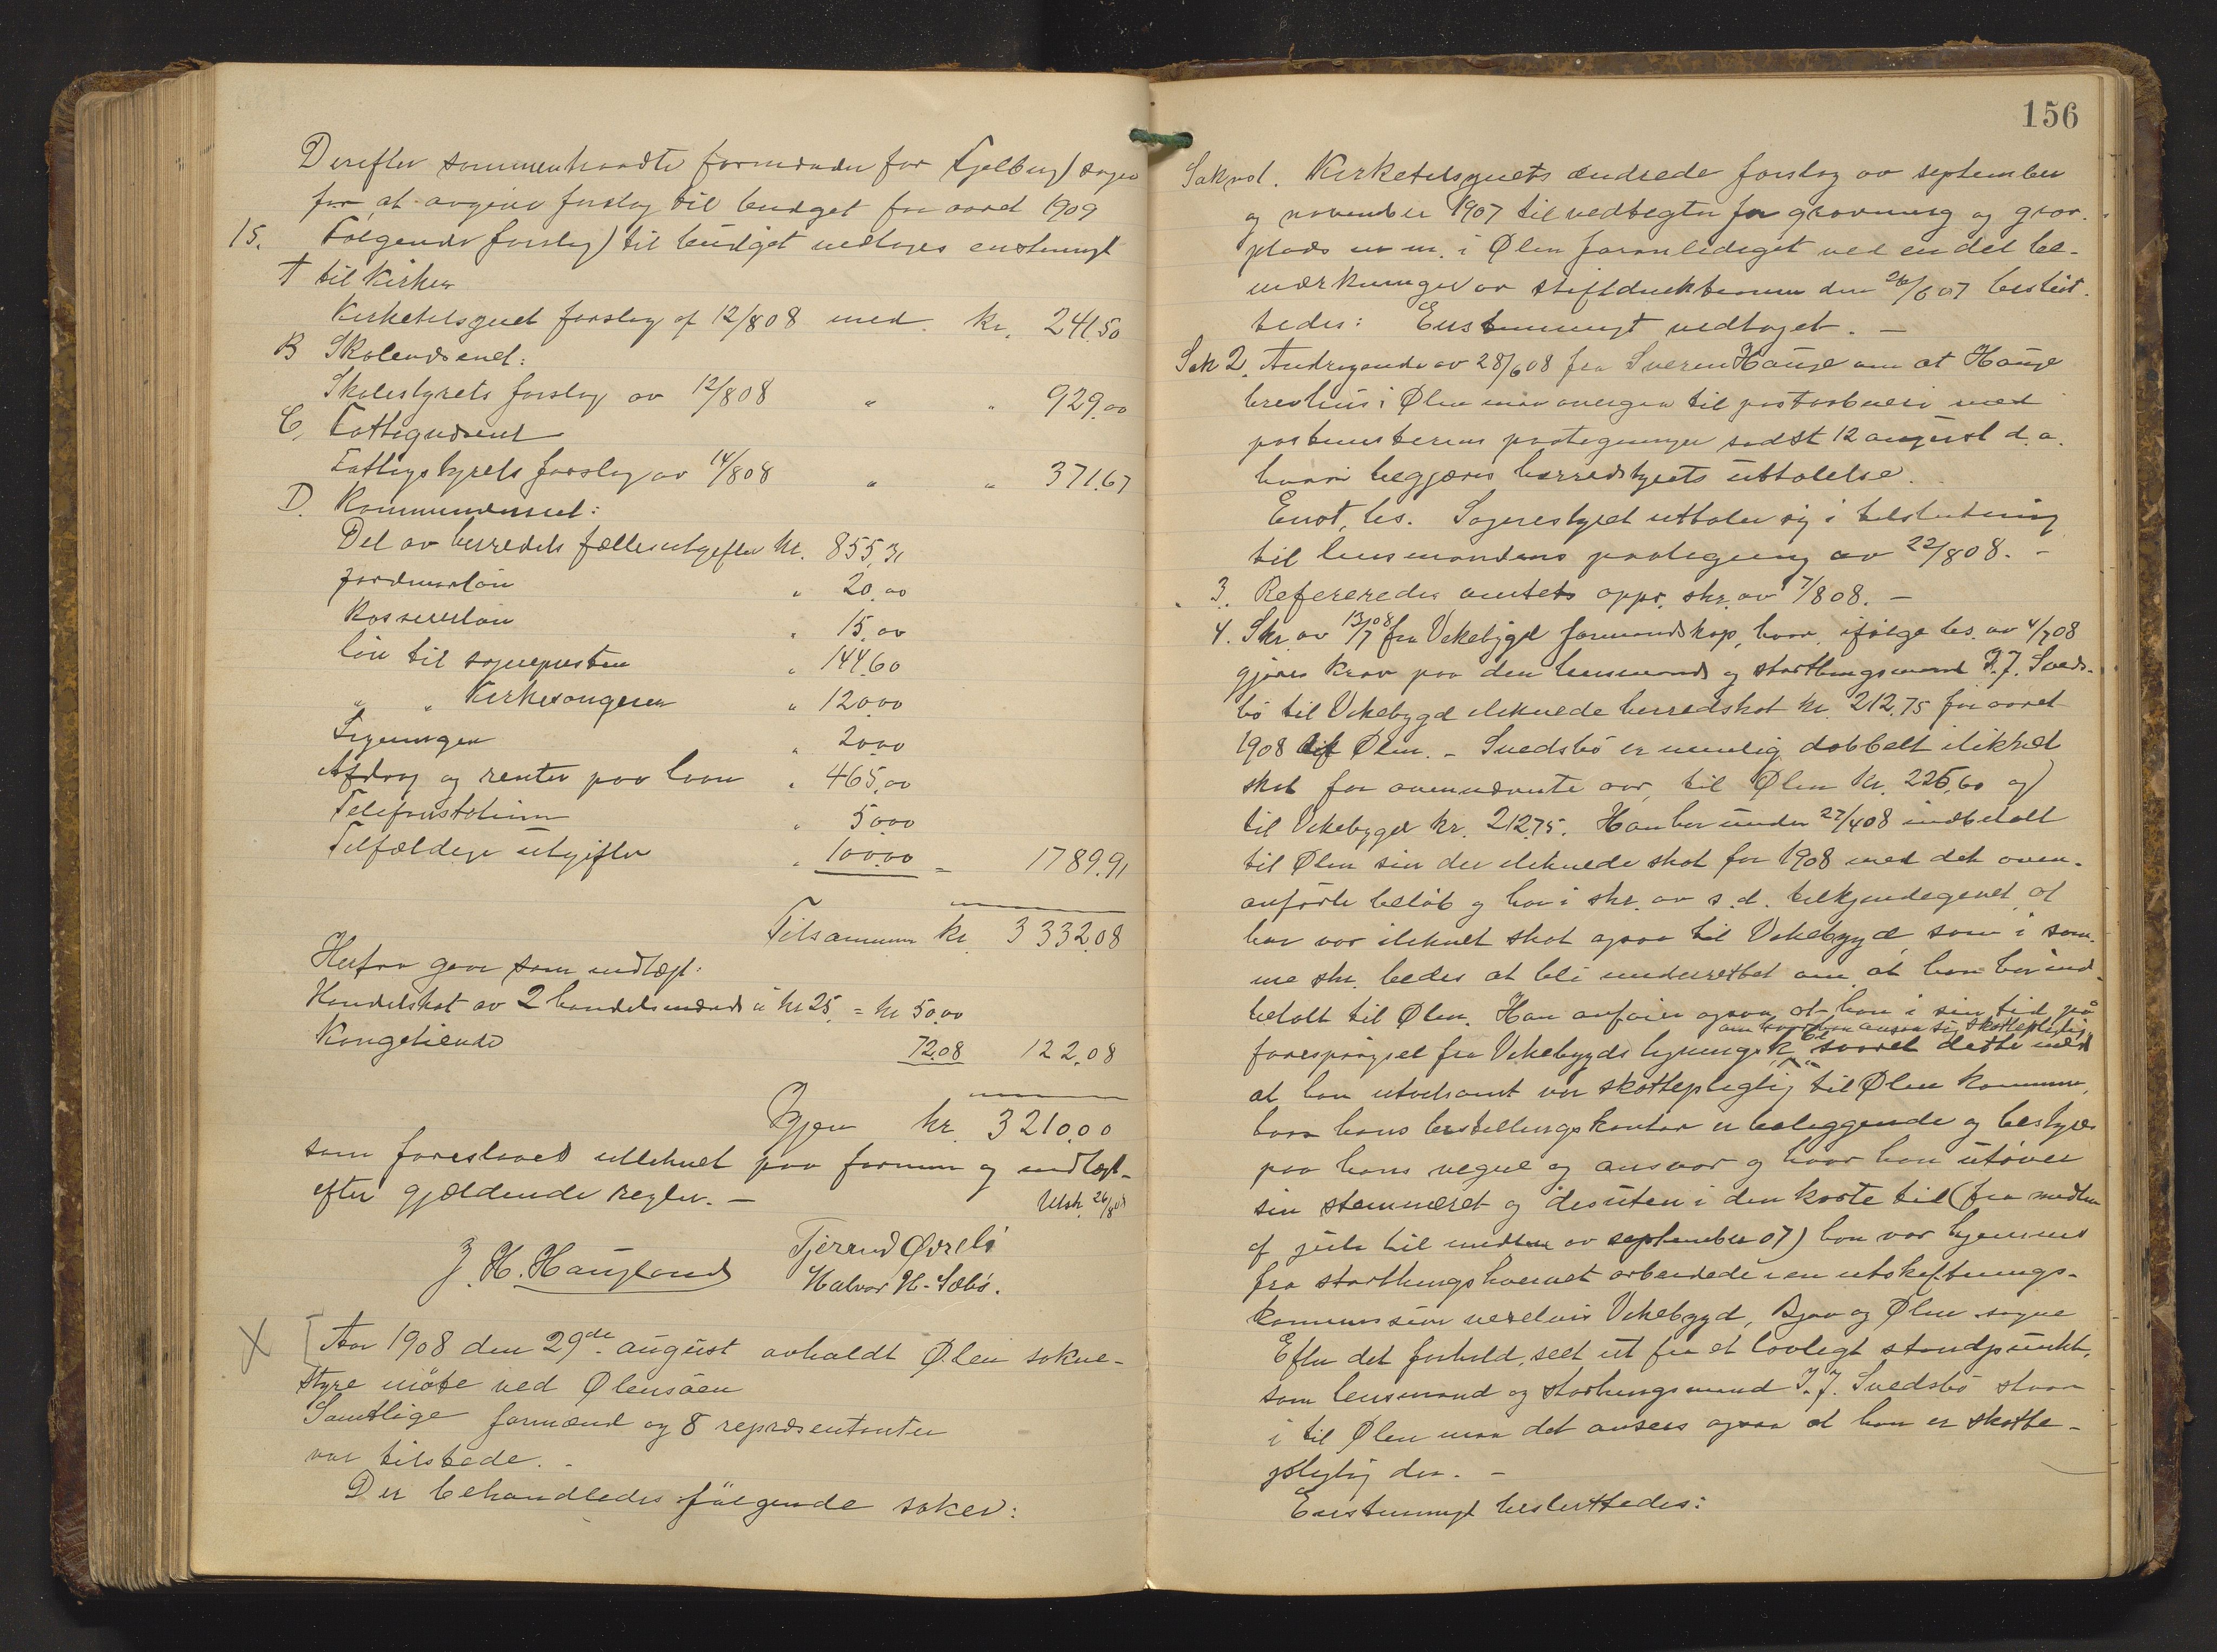 Derefter sammentraadte formænder for Fjelberg sogn
for at avgive forslag til budget for aaret 1909
15. Følgende forslag til budget vedtoges enstemmigt
A til Kirken
Kirketilsynet forslag af 12/8 08 med kr. 241.50
B Skolevæsenet:
Skolestyrets forslag av 12/8 08 " " 929.00
C. Fattigvæsenet
Fattigstyrets forslag av 14/8 08 " " 371.67
D. Kommunevæsenet:
Del av herredets fællesutgifter kr. 855,31
Jordmorløn " 20.00
Kassererløn " 15.00
Løn til sognepresten " 144.60
" " Kirkesangeren " 120.00
Ligningen " 20.00
Afdrag og renter paa laan " 465.00
Telefonstation " 50.00
Tilfældige utgifter " 100.00 = 1789.91
Tilsammen kr. 3332.08
Herfra gaar som indtægt:
Handelskat av 2 handelsmænd à kr 25. = kr 50.00
Kongetiende 72.08 122.08
Igjen kr. 3210.00
som foreslaaes utlignet paa formue og indtægt
efter gjældende regler. —
Utsk. 26/8 08
J. H. Haugland Tjerand Øvrebø
Halvor H. Sæbø.
X [Aar 1908 den 29de august avholdt Ølen sokne-
styre møte ved Ølensøen
Samtlige formænd og 8 repræsentanter
var tilstede. -
Der behandledes følgende saker:
156
Sak no 1. Kirketilsynets ændrede forslag av september
og november 1907 til vedtegter for gravning og grav-
plads m. m. i Ølen foranlediget ved endel be-
mærkninger av stiftdirektionen den 26/6 07 beslut-
tedes: Enstemmigt vedtaget. —
Sak 2. Andragende av 28/6 08 fra Sveren Hauge om at Hauge
brevhus i Ølen maa overgaa til postaabneri med
postmesterens paategninger sidst 12 august d. a.
hvori begjæres herredstyrets uttalelse.
Enst. bes. Sognestyret uttaler sig i tilslutning
til lensmandens paategning av 22/8 08. -
3. Refereredes amtets oppr. skr. av 7/8 08. —
4. Skr. av 13/7 08 fra Vikebygd formandskap, hvor ifølge bes. av 4/7 08
gjøres krav paa den lensmand og stortingsmand I. J. Sveds-
bø til Vikebygd ilignede herredskat kr. 212.75 for aaret
1908 til Ølen. - Svedsbø er nemlig dobbelt ilignet
skat for ovennævnte aar, til Ølen kr. 226,60 og
til Vikebygd kr. 212.75. Han har under 27/4 08 indbetalt
til Ølen sin der ilignede skat for 1908 med det oven-
anførte beløb og har i skr. av s. d. tilkjendegivet at
han var ilignet skat ogsaa til Vikebygd, som i sam-
me skr. bedes at bli underrettet om, at han har ind-
betalt til Ølen. Han anfører ogsaa, at han i sin tid på
om hvor han ansaa sig skattepligtig
forespørgsel fra Vikebygds ligningsk. svaret dette med
at han utvilsomt var skattepligtig til Ølen kommune,
hvor hans bestillingskontor er beliggende og bestyres
paa hans vegne og ansvar og hvor han utøver
sin stemmeret og desuten i den korte tid (fra midten
af juli til midten av september 07) han var hjemme
fra stortingshvervet arbeidede i en utskiftnings-
kommission vexelvis Vikebygd, Bjoa og Ølen sogne
Efter det forhold, seet ut fra et lovligt standpunkt,
som lensmand og stortingsmand I. J. Svedsbø staar
i til Ølen maa det ansees ogsaa at han er skatte-
pligtig der. —
Enstemmigt besluttedes: